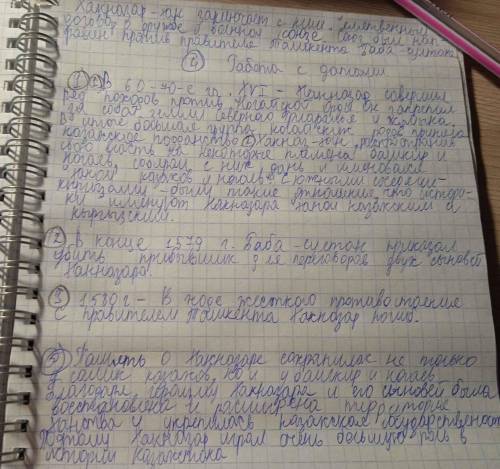 Хакназар-хан заключает с ним клятвенный
договор о дружбе и военном союзе. Союз был нап-
равлен против правителя Ташкента Баба-султана
④ Работа с датами
① В 60-70-е гг. XVI - Хакназар совершил
ряд походов против Ногайской орды он закрепил
за собой земли северного
В итоге большая группа ногайских родов приняла
казахское подданство ② Хакназ-хан распространив
свою власть на некоторые племена башкир и
ногаев, собирал с них дань и именовался
ханом казахов и ногаев. С южными соседями-
кыргызами - были такие отношения, что истори-
ки именуют Хакназара ханом казахским и
кыргызским.
② В конце 1579 г. Баба-султан приказал
убить прибывших для переговоров двух сыновей
Хакназара.
③ 1580 г - В ходе жесткого противостояния
с правителем Ташкента Хакназар погиб.
⑤ Память о Хакназаре сохранилась не только
у самих казахов, но и у башкир и ногаев.
Благодаря Хакназара и его сыновей была
восстановлена и расширена территория
ханства и укрепилась казахская государственность
поэтому Хакназар играл очень большую роль в
истории Казахстана